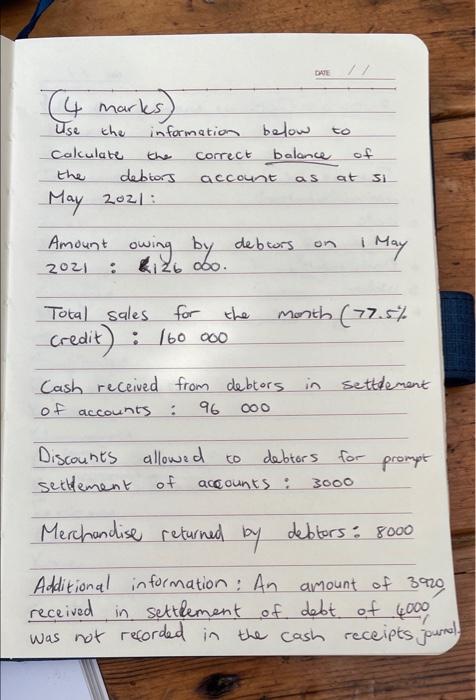 DATE / /
(4 marks)
Use the information below to
calculate the correct balance of
the debtors account as at 31
May 2021:
Amount owing by debtors on 1 May
2021 : 126 000.
Total sales for the month (77.5%
credit) : 160 000
Cash received from debtors in settlement
of accounts : 96 000
Discounts allowed to debtors for prompt
settlement of accounts : 3000
Merchandise returned by debtors : 8000
Additional information : An amount of 3920,
received in settlement of debt of 4000,
was not recorded in the cash receipts journal.